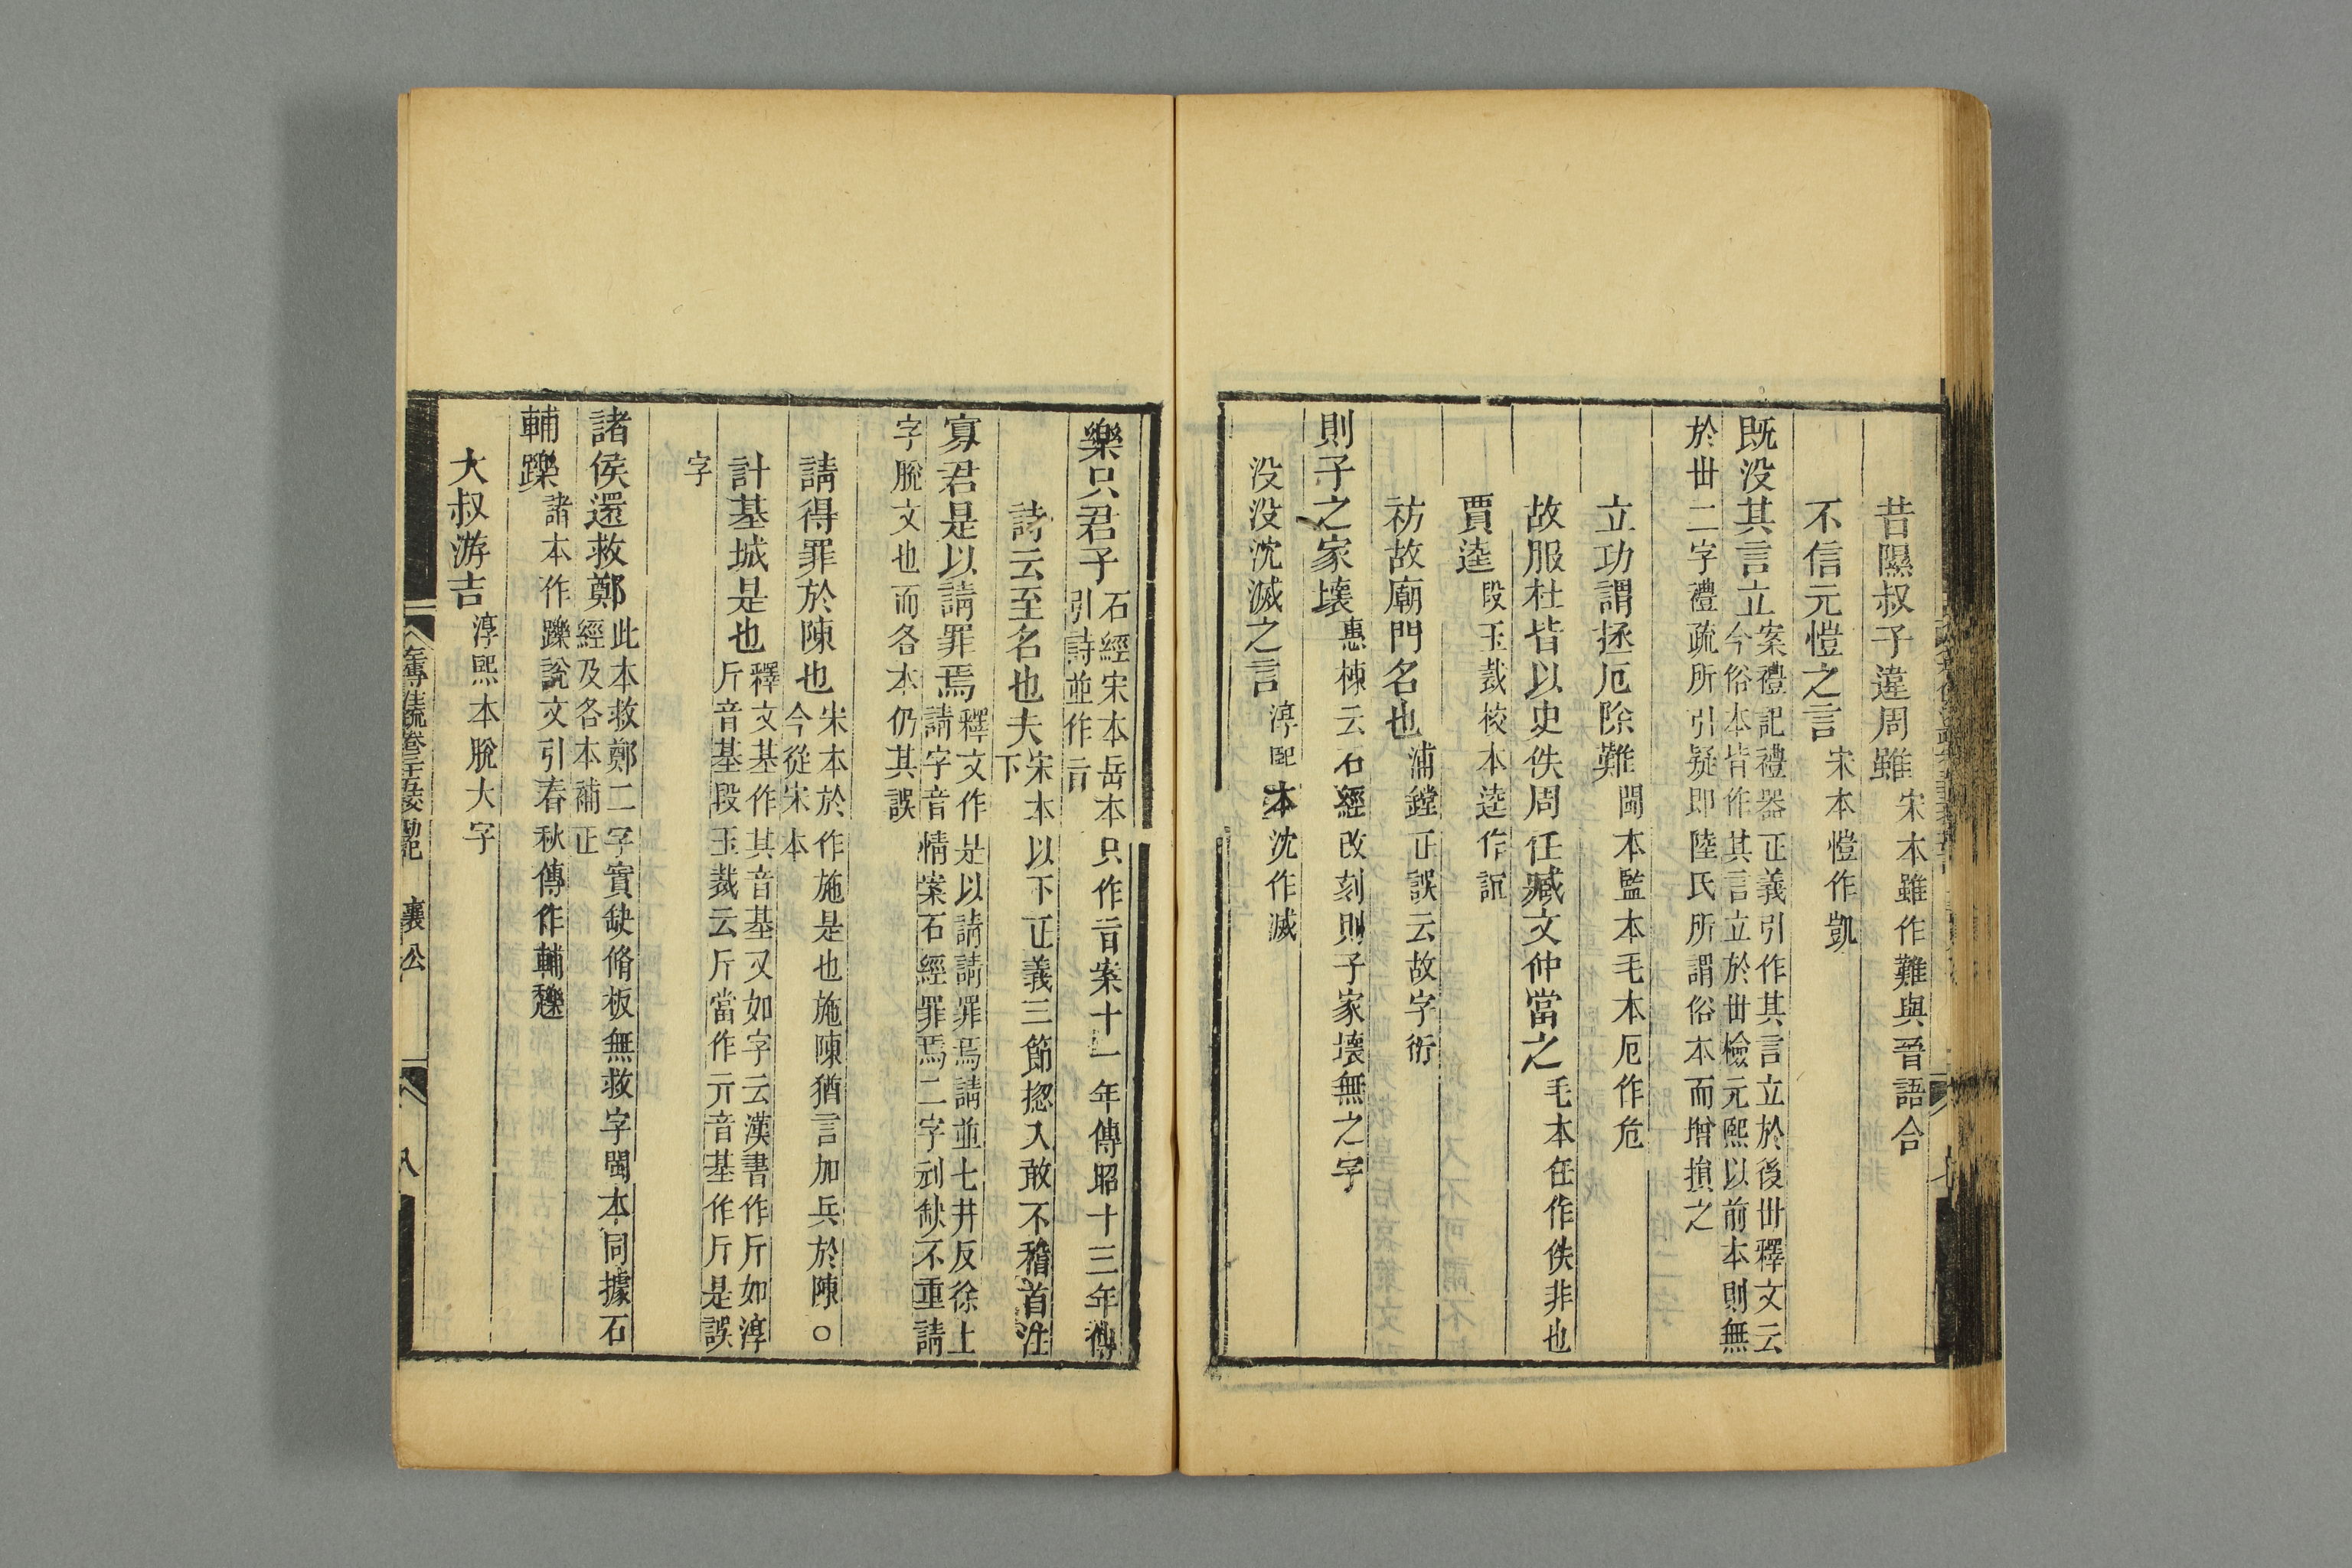 昔隰叔子違周難宋本雖作難與晉語合
不信元愷之言宋本愷作凱
既没其言立案禮記禮器正義引作其言立於後丗釋文云
今俗本皆作其言立於丗檢元熙以前本則無
於丗二字禮疏所引疑即陸氏所謂俗本而增損之
立功謂拯厄除難閩本監本毛本厄作危
故服杜皆以史佚周任臧文仲當之毛本任作佚非也
賈逵段玉裁校本逵作沉
祊故廟門名也浦鏜正誤云故字衍
則子之家壞惠棟云石經改刻則子家壞無之字
没没沈滅之言淳熙本沈作滅
樂只君子石經宋本岳本只作旨案十一年傳昭十三年傳
引詩並作旨
詩云至名也夫宋本以下正義三節揔入敢不稽首注
下
寡君是以請罪焉釋文作是以請請罪焉請並七井反徐上
請字音情案石經罪焉二字刓缺不重請
字脫文也而各本仍其誤
請得罪於陳也宋本於作施是也施陳猶言加兵於陳○
今從宋本
計基城是也釋文基作其音基又如字云漢書作斤如淳
斤音基段玉裁云斤當作亓音基作斤是誤
字
諸侯還救鄭此本救鄭二字實缺脩板無救字閩本同據石
經及各本補正
輔躒諸本作躒說文引春秋傳作輔𨇨
大叔游吉淳熙本脫大字
左傳注疏卷三十五校勘記 襄公 八